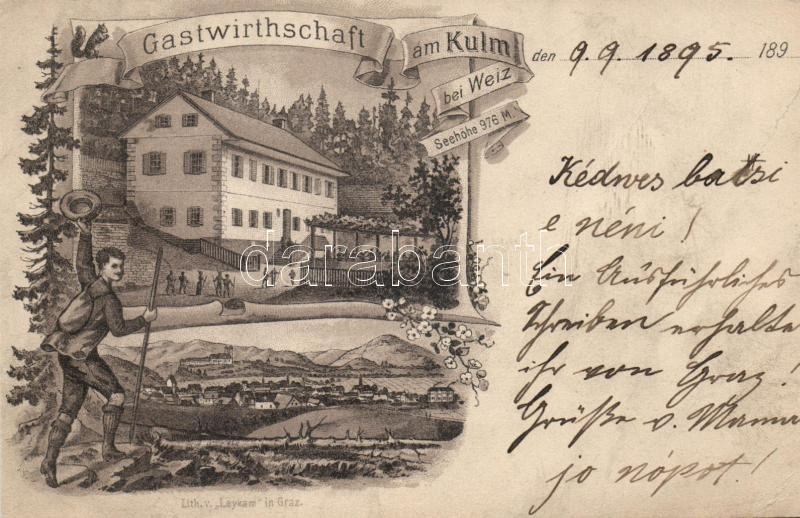 Gastwirthschaft
am Kulm
bei Weiz
Seehöhe 976 M.
den 9. 9. 1895. 189
Kédves batsi
e néni!
Ein Ausführliches
Schreiben erhalte
ihr von Graz!
Grüße v. Mama
jo nópot!
darabanth
Lith. v. „Leykam" in Graz.